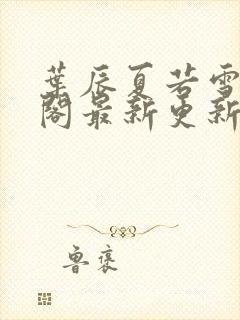 葉辰夏若雪
閣最新更新
鲁褒